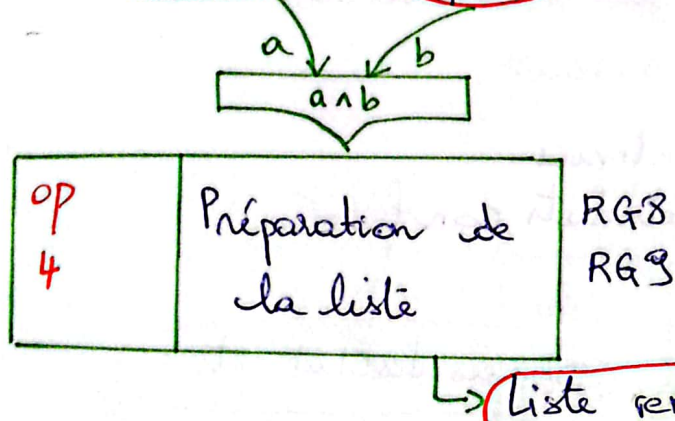 a b
a ∧ b
op
4
Préparation de
la liste
RG8
RG9
Liste